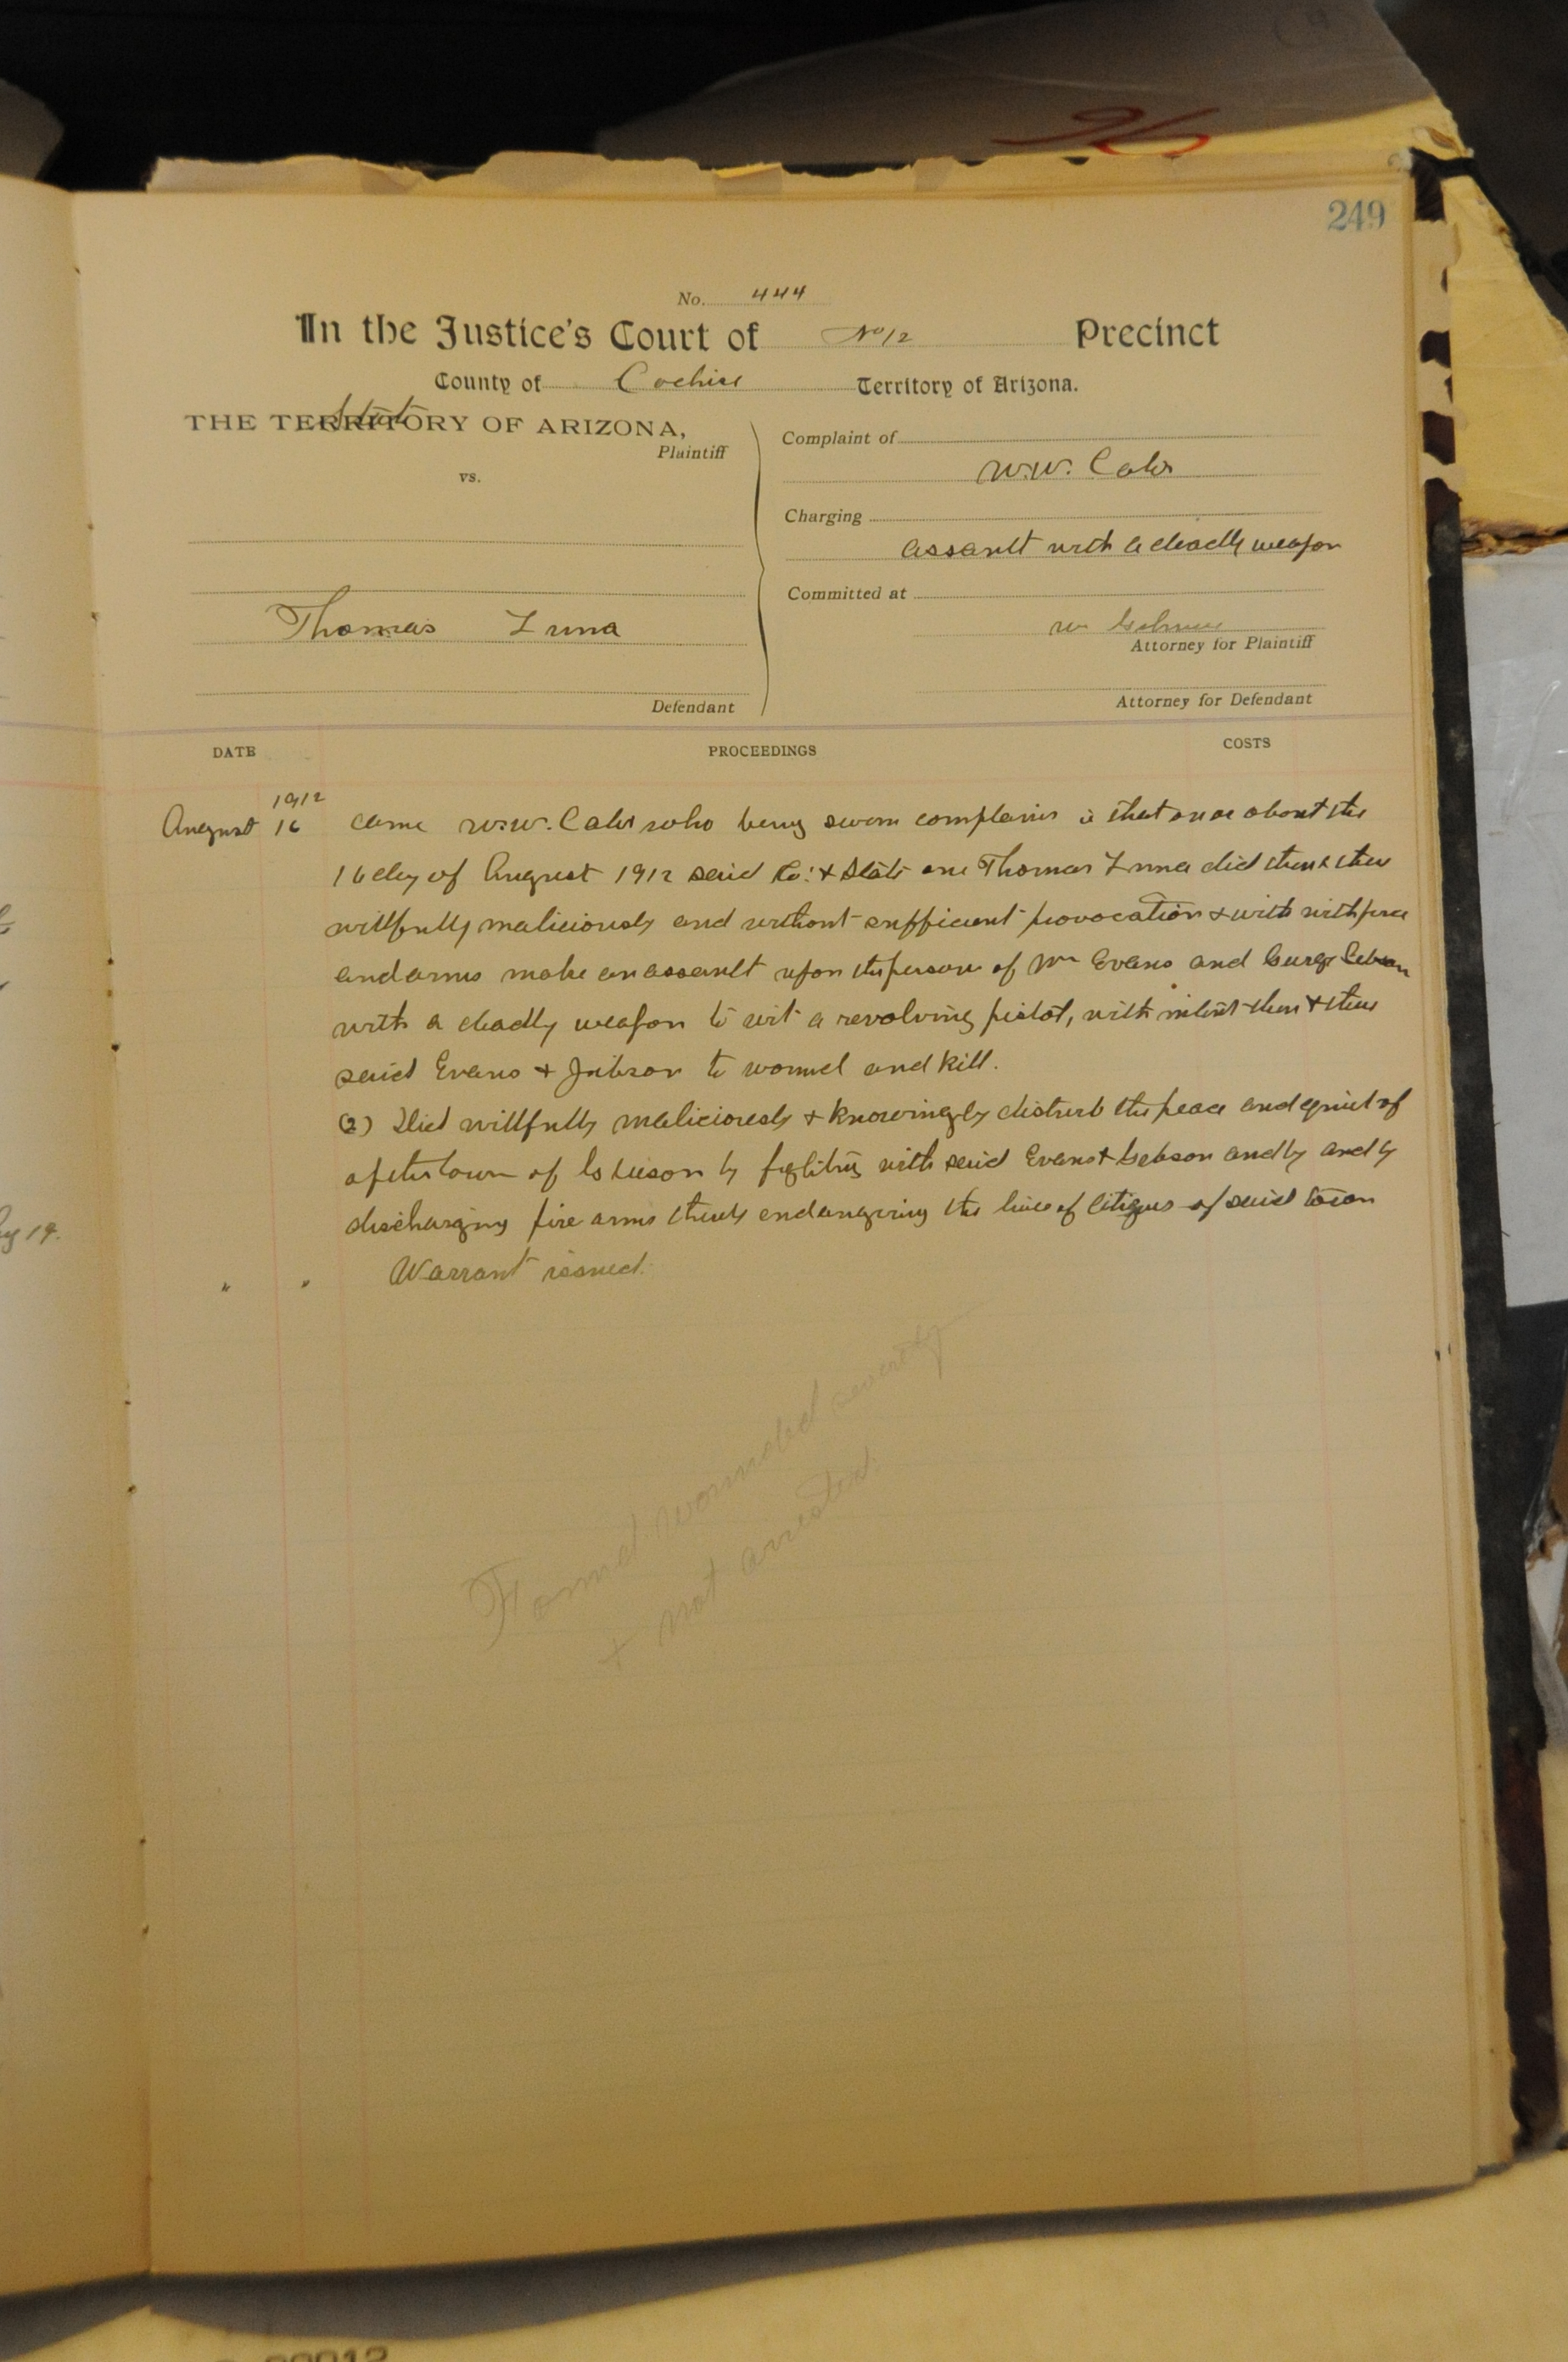 249
No. 444
In the Justice's Court of No 12 Precinct
County of Cochise Territory of Arizona.
State
THE TERRITORY OF ARIZONA,
Plaintiff
vs.
Thomas Luna
Defendant
Complaint of
W.W.
Charging
Assault with a deadly weapon
Committed at
Attorney for Plaintiff
Attorney for Defendant
DATE PROCEEDINGS COSTS
1912
August 16 came W.W. who being sworn complains that on or about the
16 day of August 1912 said Co. & State one Thomas Luna did then & there
willfully maliciously and without sufficient provocation & with with force
and arms make an assault upon the person of Wm Evans and
with a deadly weapon to wit a revolving pistol, with intent then & there
said Evans & Gibson to wound and kill.
(2) Did willfully maliciously & knowingly disturb the peace and quiet of
of the town of by fighting with said Evans & Gibson and by and by
discharging fire arms thereby endangering the lives of citizens of said town
" " Warrant issued.
Found wounded severely
& not arrested.